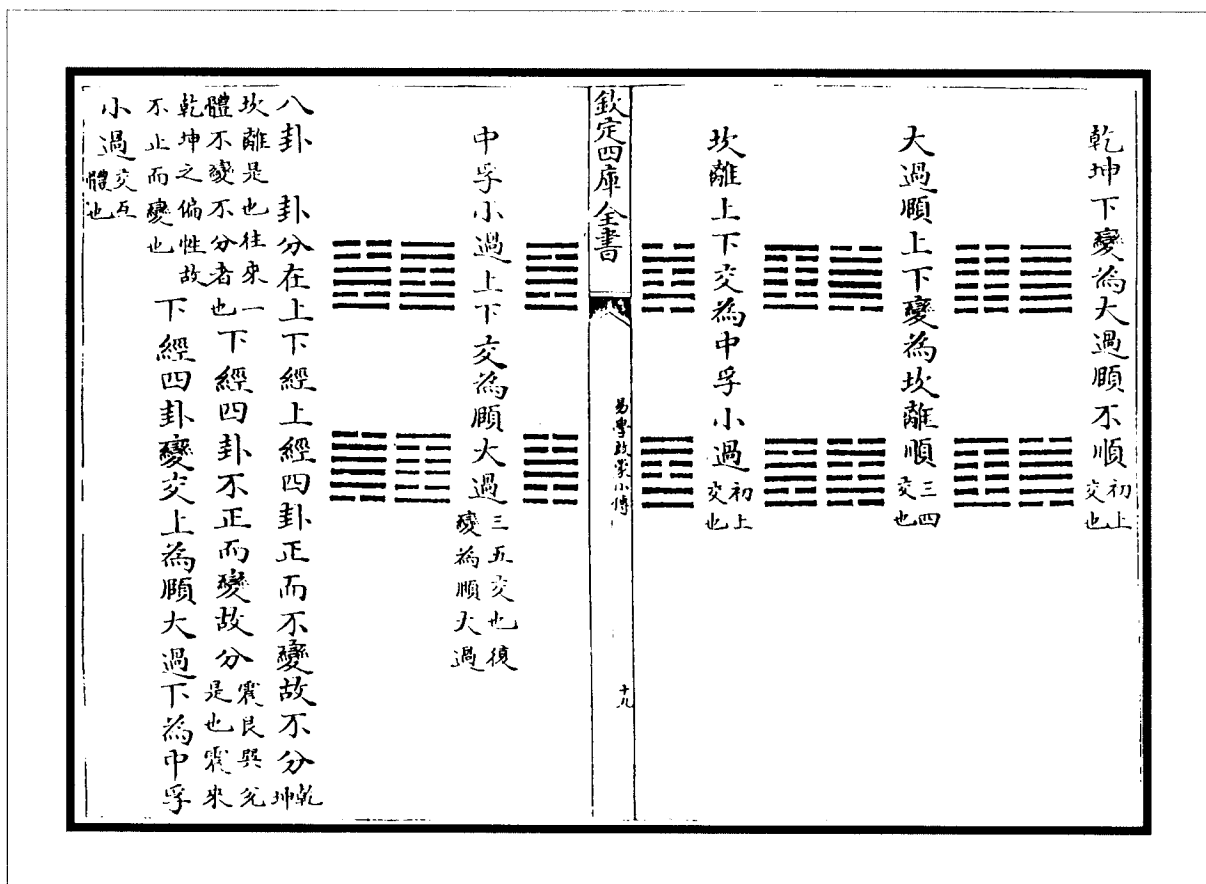 乾坤下變為大過頤不順初上交也
大過頤上下變為坎離順三四交也
坎離上下交為中孚小過初上交也
欽定四庫全書
易學啟蒙小傳
十九
中孚小過上下交為頤大過三五交也復變為頤大過
八卦 卦分在上下經上經四卦正而不變故不分乾坤
坎離是也往來一體不變不分者也下經四卦不正而變故分震艮巽兌是也震來
乾坤之偏性故不止而變也下經四卦變交上為頤大過下為中孚
小過交互體也